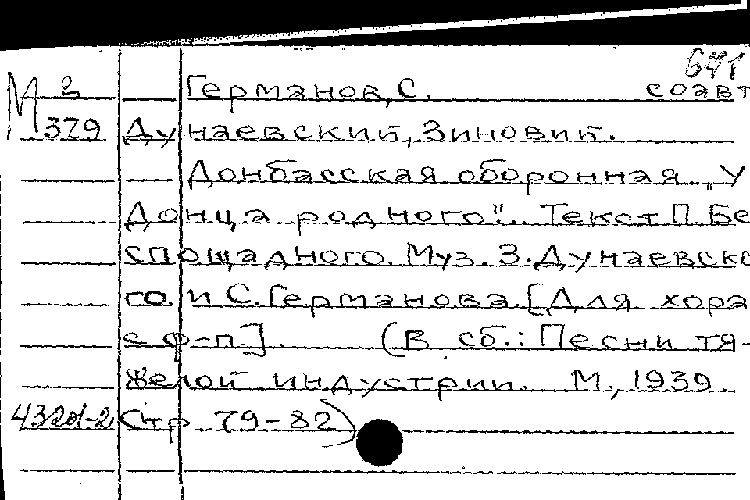 641
М 2 Германов, С. соавт
379 Дунаевский, Зиновий.
Донбасская оборонная „У
Донца родного". Текст П. Бе
спощадного. Муз. З. Дунаевско
го и С. Германова. [Для хора
с ф-п]. (В сб.: Песни тя-
желой индустрии. М., 1939.
Стр. 79-82)